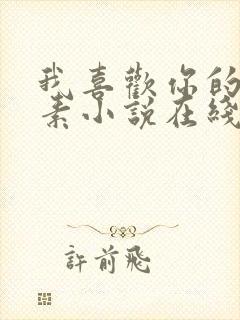 我喜歡你的
素小說在綫
許前飛